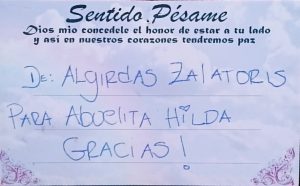 Sentido Pésame
Dios mio concedele el honor de estar a tu lado
y asi en nuestros corazones tendremos paz
DE: ALGIRDAS ZALATORIS
PARA ABUELITA HILDA
GRACIAS!